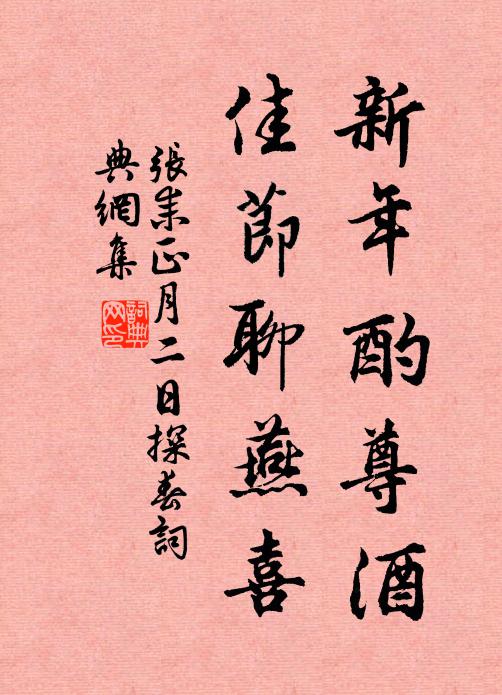 新年酌尊酒
佳節聊燕喜
張耒正月二日探春詞
典網集
詞典网印